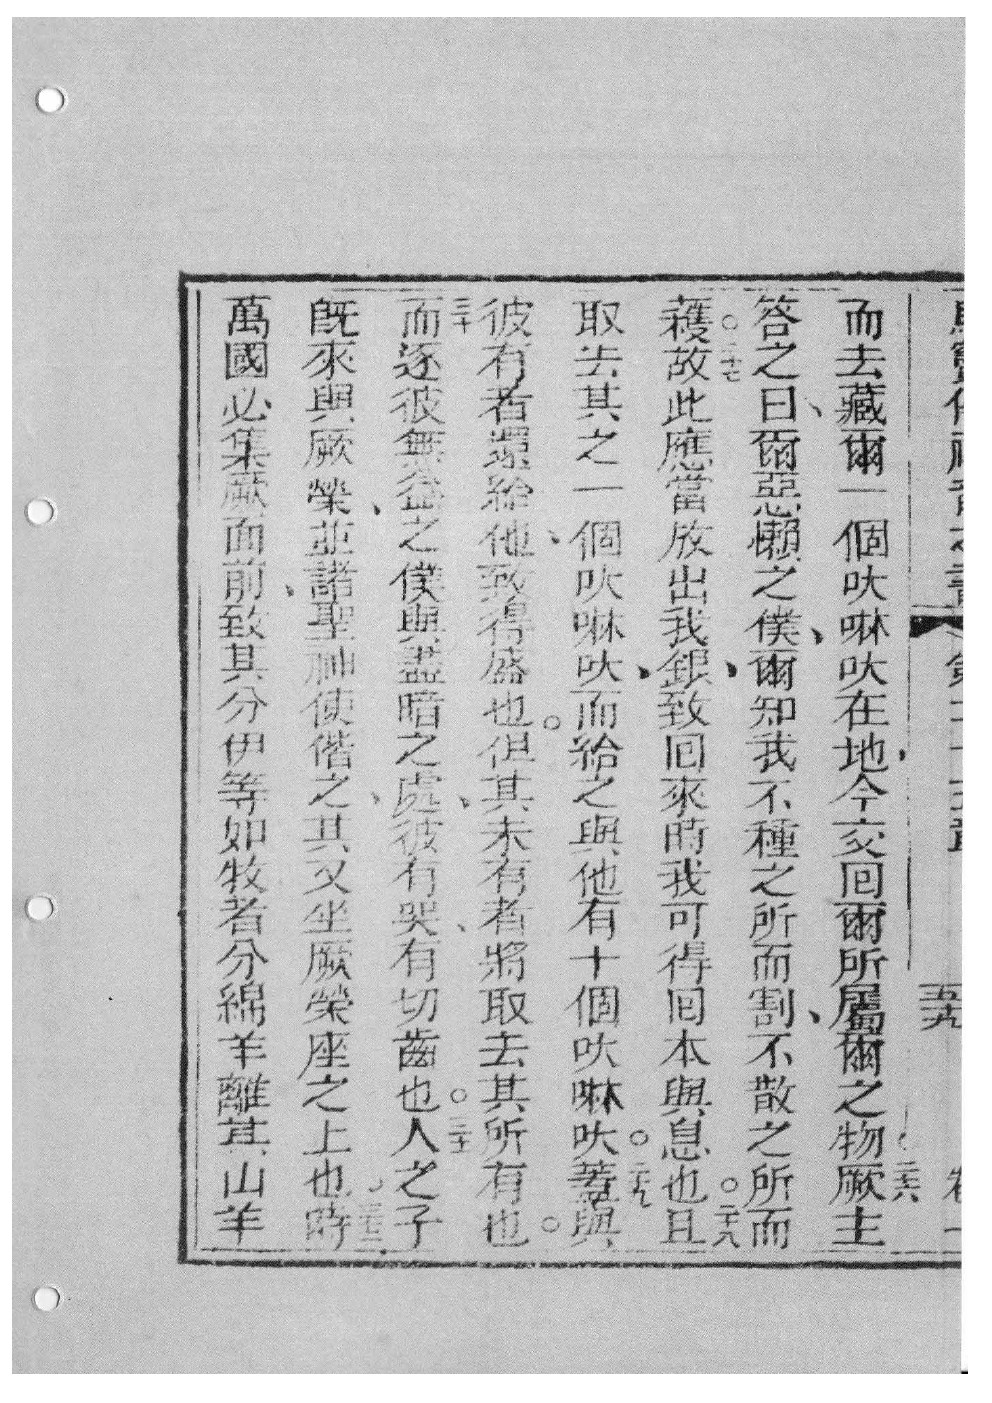 傳福音之書 第二十五章 五九 卷一
而去藏爾一個吠啉吠在地、今交囘爾所屬爾之物○二六厥主
答之曰、爾惡懶之僕、爾知我不種之所而割、不散之所而
穫○二十七故此應當放出我銀、致囘來時我可得囘本與息也○二十八且
取去其之一個吠啉吠、而給之與他有十個吠啉吠○二十九蓋與
彼有者還給他、致得盛也○但其未有者將取去其所有也○
三十而逐彼無益之僕與盡暗之處、彼有哭、有切齒也○三十一人之子
旣來與厥榮、並諸聖神使偕之、其又坐厥榮座之上也○三十二時
萬國必集厥面前、致其分伊等如牧者分綿羊離其山羊